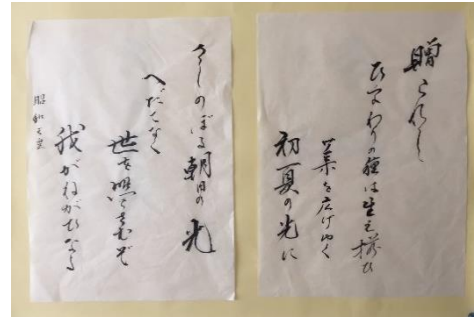 贈られし
ひまわりの種は生え揃ひ
葉を広げゆく
初夏の光に
さしのぼる朝日の光
へだてなく
世を照らさむぞ
我がねがひなる
昭和天皇